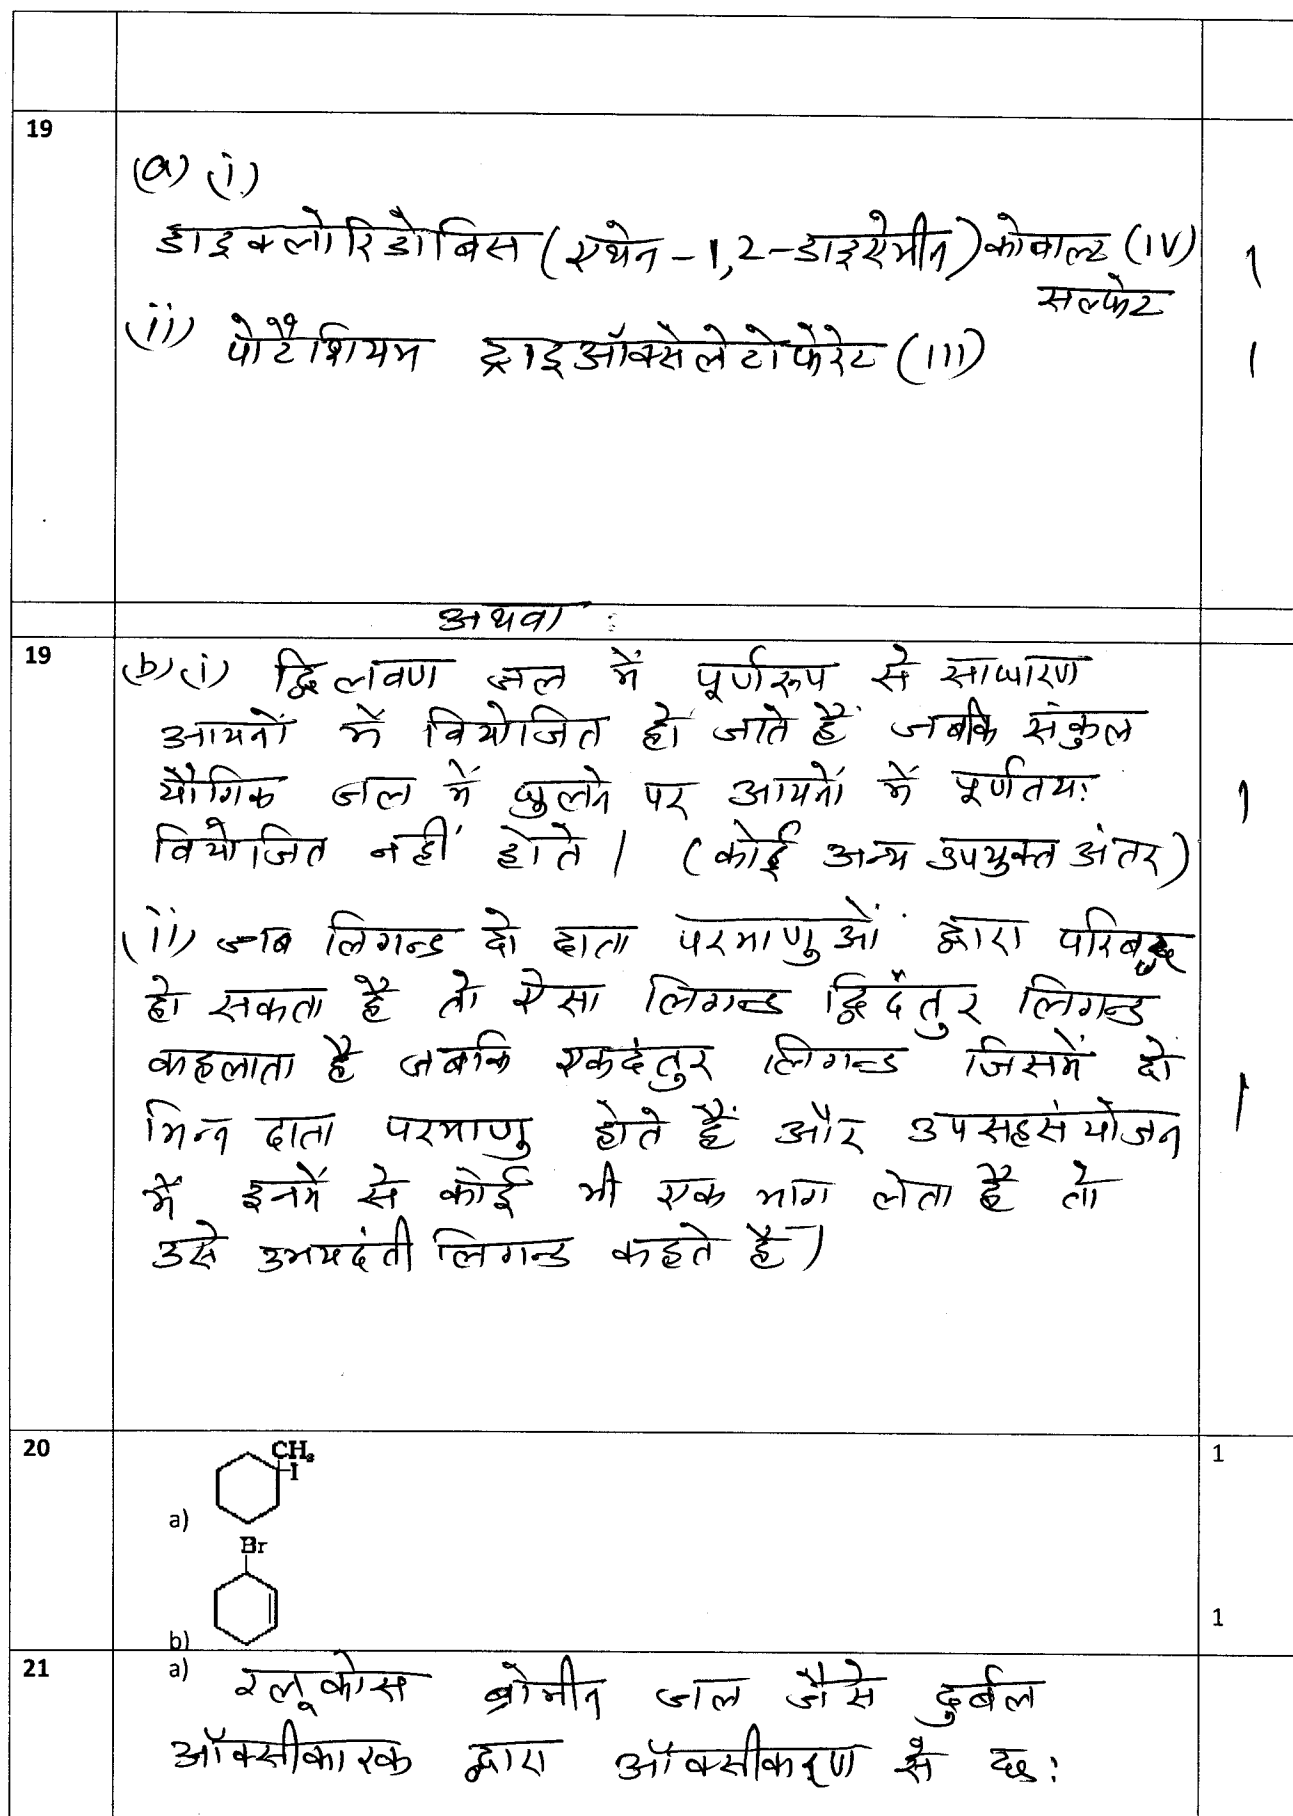 19
(a) (i)
डाइक्लोरिडोबिस (एथेन-1,2-डाइऐमीन) कोबाल्ट (IV) 1
सल्फेट
(ii) पोटैशियम ट्राइऑक्सैलेटोफेरेट (III) 1
अथवा
19
(b) (i) द्विलवण जल में पूर्णरूप से साधारण
आयनों में वियोजित हो जाते हैं जबकि संकुल
यौगिक जल में घुलने पर आयनों में पूर्णतयः 1
वियोजित नहीं होते। (कोई अन्य उपयुक्त अंतर)
(ii) जब लिगन्ड दो दाता परमाणुओं द्वारा परिबद्ध
हो सकता है तो ऐसा लिगन्ड द्विदंतुर लिगन्ड
कहलाता है जबकि एकदंतुर लिगन्ड जिसमें दो 1
भिन्न दाता परमाणु होते हैं और उपसहसंयोजन
में इनमें से कोई भी एक भाग लेता है तो
उसे उभयदंती लिगन्ड कहते हैं।
20 1
CH₃
I
a)
Br
b) 1
21
a) ग्लूकोस ब्रोमीन जल जैसे दुर्बल
ऑक्सीकारक द्वारा ऑक्सीकरण से छः